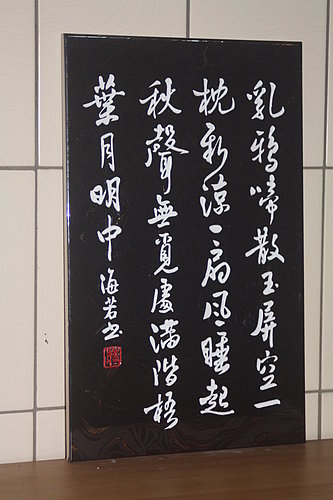 乳鴉啼散玉屏空一
枕新涼一扇風睡起
秋聲無覓處滿階梧
葉月明中海若書